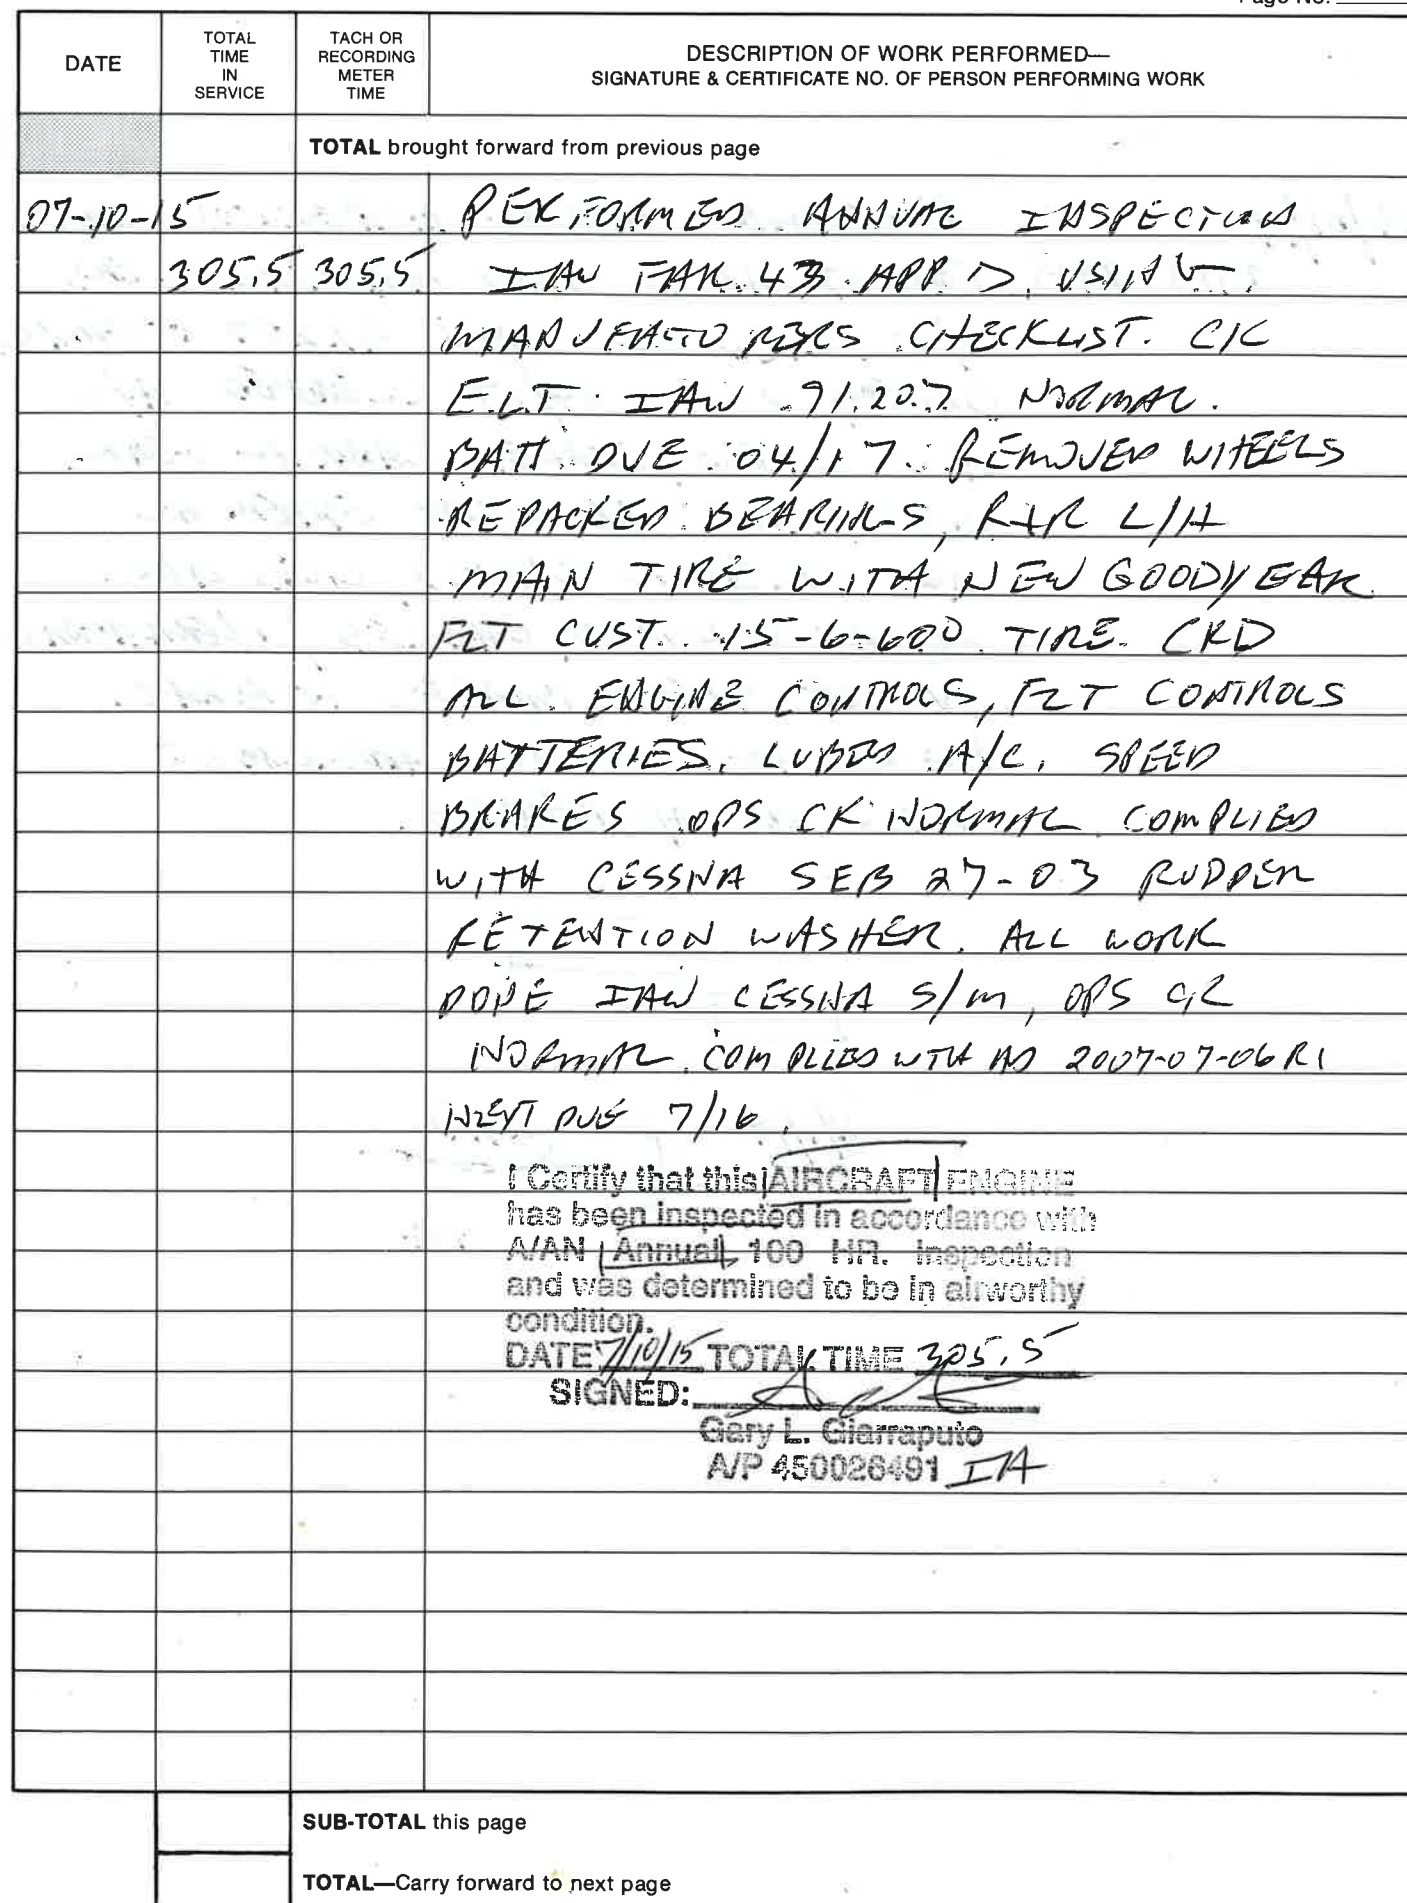 Page No.
DATE
TOTAL TIME IN SERVICE
TACH OR RECORDING METER TIME
DESCRIPTION OF WORK PERFORMED—
SIGNATURE & CERTIFICATE NO. OF PERSON PERFORMING WORK
TOTAL brought forward from previous page
07-10-15 PERFORMED ANNUAL INSPECTION
305.5 305.5 IAW FAR 43 APP D, USING
MANUFACTORERS CHECKLIST. CK
E.L.T. IAW 91.207 NORMAL.
BATT DUE 04/17. REMOVED WHEELS
REPACKED BEARINGS, R+R L/H
MAIN TIRE WITH NEW GOODYEAR
FLT CUST. 15-6-600 TIRE. CKD
ALL ENGINE CONTROLS, FLT CONTROLS
BATTERIES. LUBED A/C. SPEED
BRAKES OPS CK NORMAL COMPLIED
WITH CESSNA SEB 27-03 RUDDER
RETENTION WASHER. ALL WORK
DONE IAW CESSNA S/M, OPS CK
NORMAL. COMPLIED WITH AD 2007-07-06 R1
NEXT DUE 7/16.
I Certify that this AIRCRAFT ENGINE
has been inspected in accordance with
A/AN Annual 100 HR. Inspection
and was determined to be in airworthy
condition.
DATE 7/10/15 TOTAL TIME 305.5
SIGNED:
Gary L. Giarraputo
A/P 450026491 IA
SUB-TOTAL this page
TOTAL—Carry forward to next page